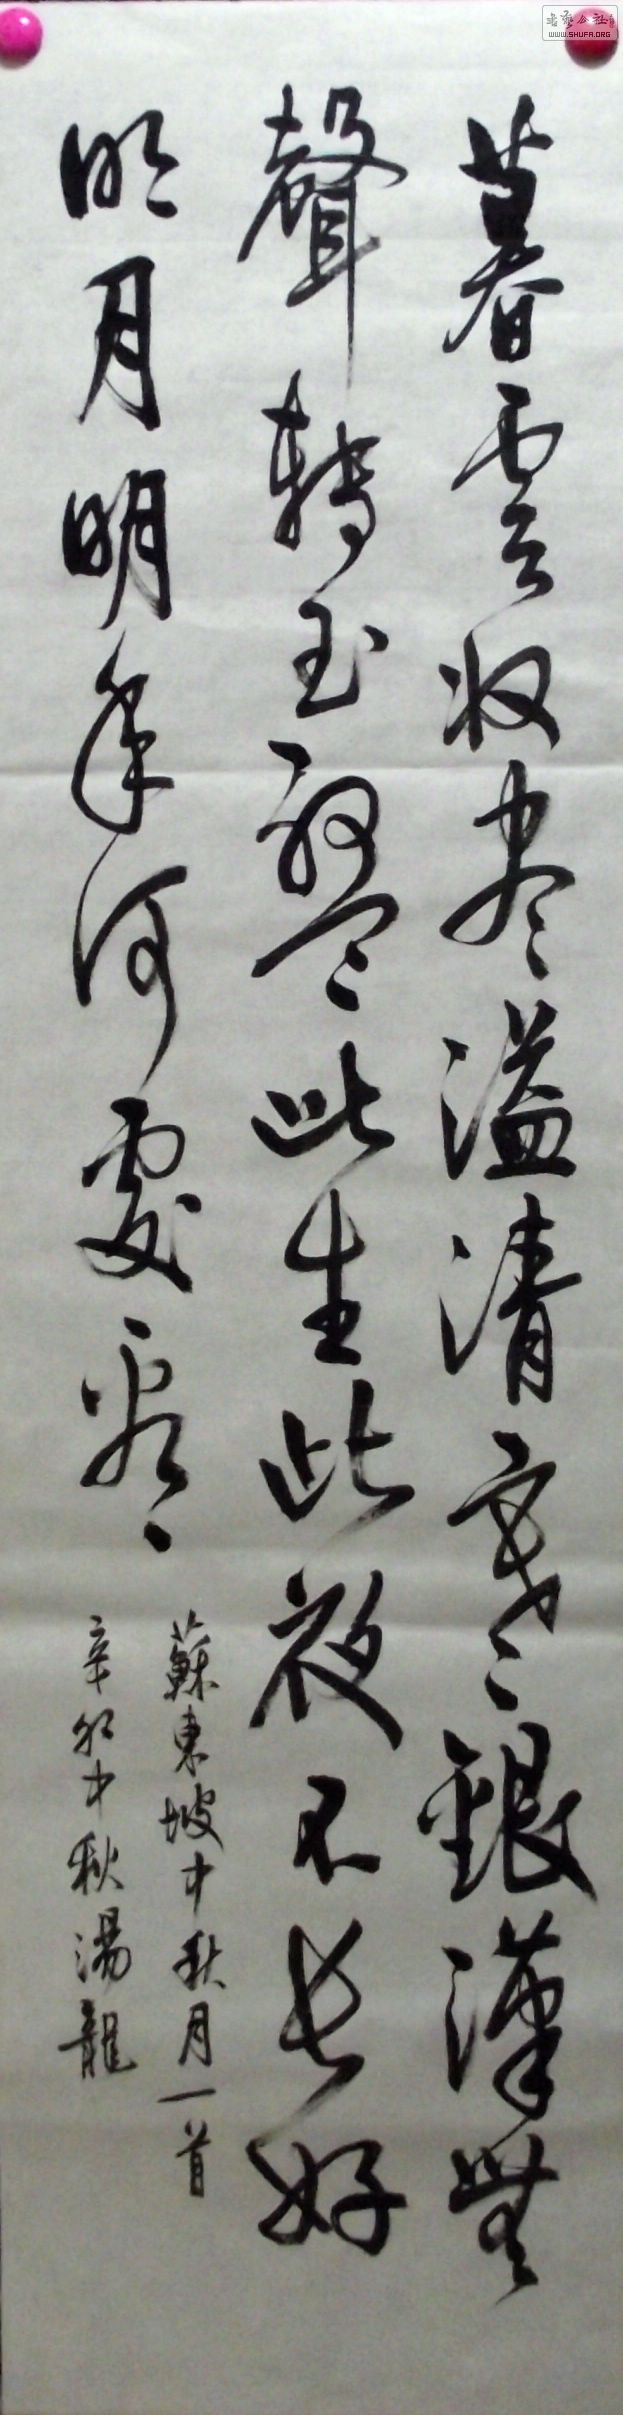 暮雲收盡溢清寒銀漢無
聲轉玉盤此生此夜不長好
明月明年何處看
蘇東坡中秋月一首
辛卯中秋湯龍
書藝公社
WWW.SHUFA.ORG